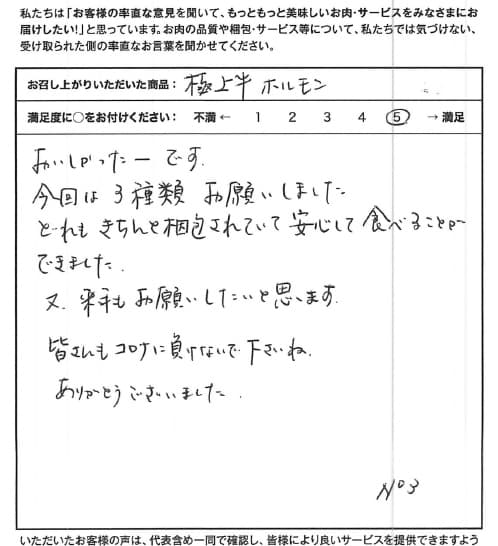 私たちは「お客様の率直な意見を聞いて、もっともっと美味しいお肉・サービスをみなさまにお
届けしたい!」と思っています。お肉の品質や梱包・サービス等について、私たちでは気づけない、
受け取られた側の率直なお言葉を聞かせてください。
お召し上がりいただいた商品: 極上牛ホルモン
満足度に○をお付けください: 不満 ← 1 2 3 4 5 → 満足
おいしかったーです.
今回は3種類お願いしました
どれもきちんと梱包されていて安心して食べることが
できました.
又、来年もお願いしたいと思います.
皆さんもコロナに負けないで下さいね.
ありがとうございました.
No3
いただいたお客様の声は、代表含め一同で確認し、皆様により良いサービスを提供できますよう